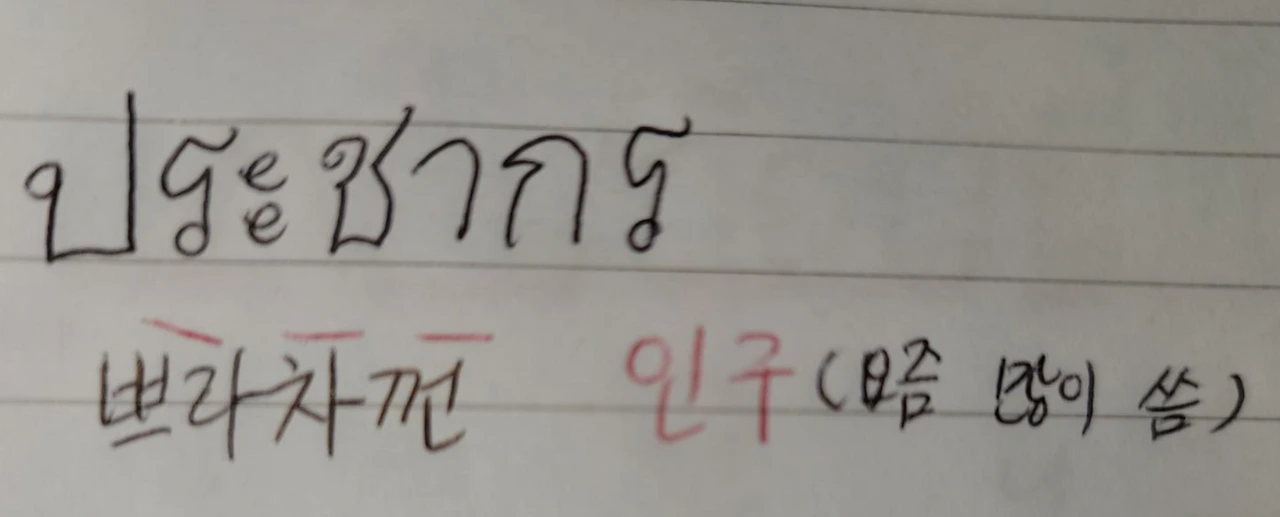 ประชากร
쁘라차껀 인구 (요즘 많이 씀)